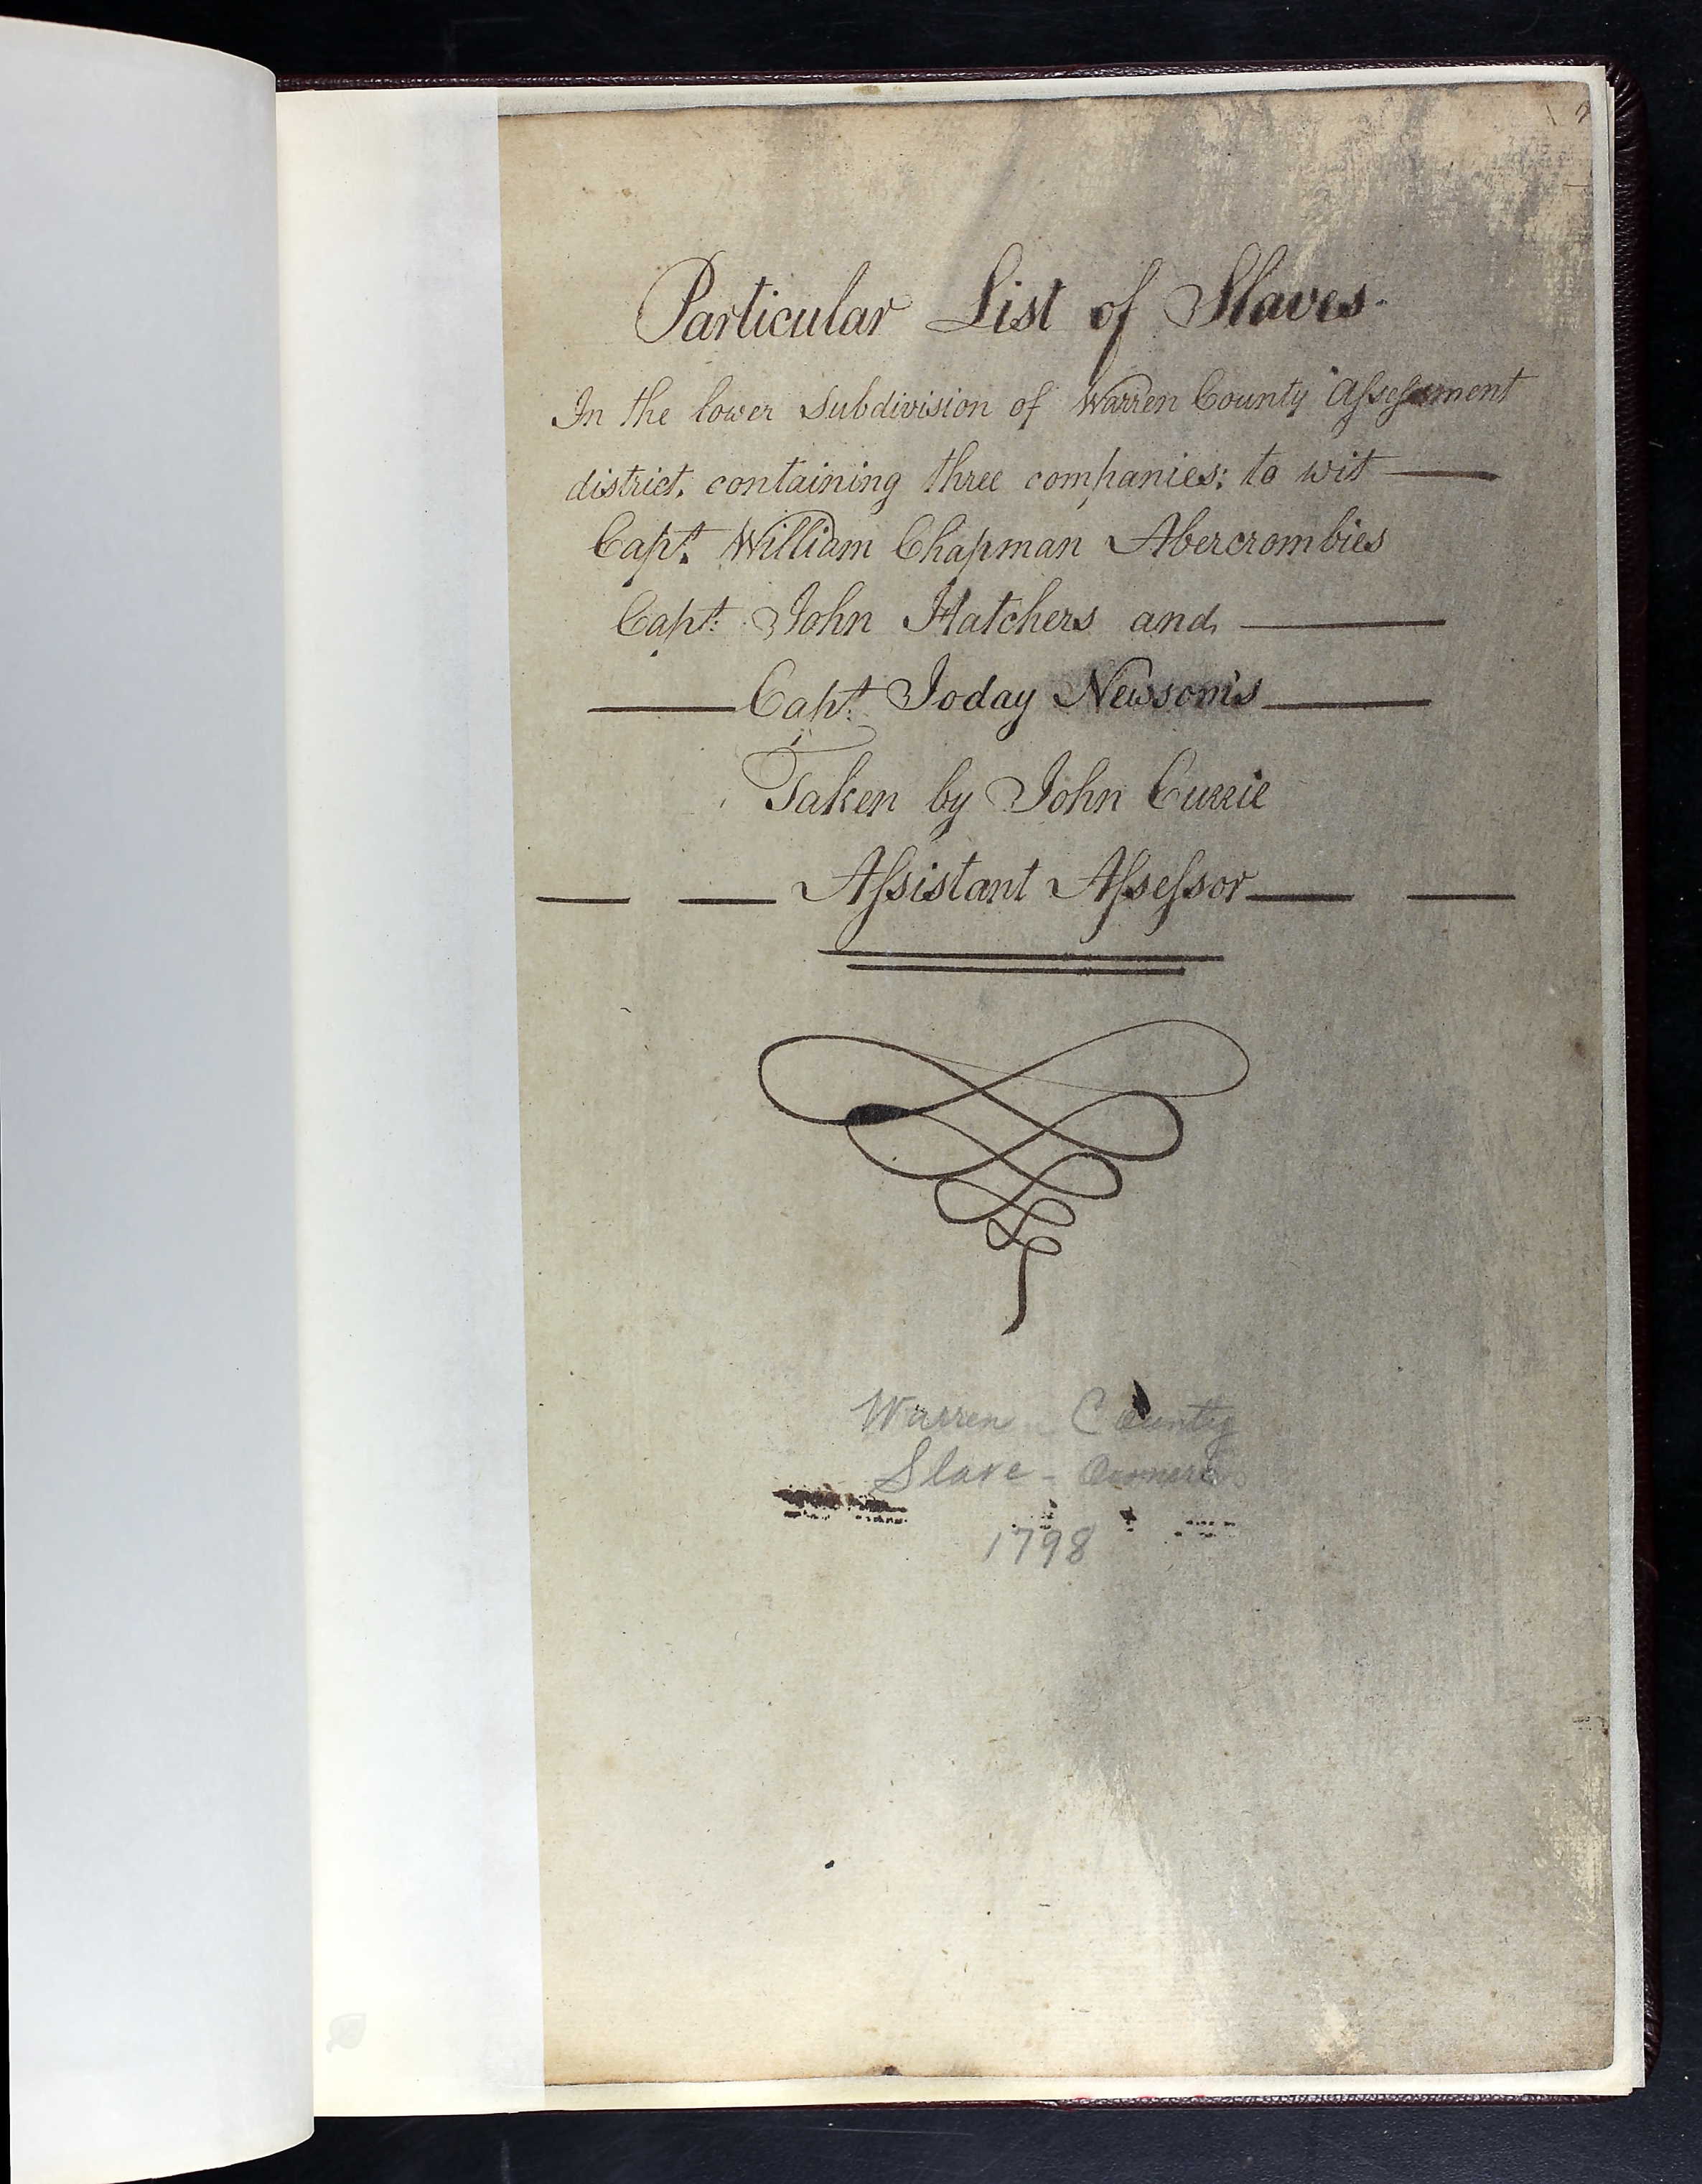 Particular List of Slaves.
In the lower Subdivision of Warren County Assessment
district, containing three companies: to wit
Capt. William Chapman Abercrombies
Capt. John Hatchers and
Capt. Joday Newsom's
Taken by John Currie
Assistant Assessor
Warren County
Slave-Owners
1798